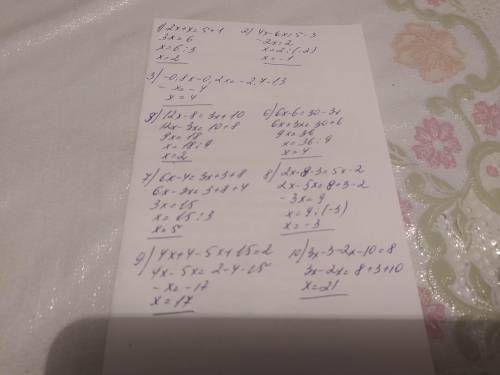 1) 2x+x=5+1
3x=6
x=6:3
x=2
2) 4x-6x=5-3
-2x=2
x=2:(-2)
x=-1
3) -0,8x-0,2x=-2,7-1,3
-x=-4
x=4
5) 12x-8=3x+10
12x-3x=10+8
9x=18
x=18:9
x=2
6) 6x-6=30-3x
6x+3x=30+6
9x=36
x=36:9
x=4
7) 6x-4=3x+3+8
6x-3x=3+8+4
3x=15
x=15:3
x=5
8) 2x-9-3=5x-2
2x-5x=9+3-2
-3x=9
x=9:(-3)
x=-3
9) 4x+4-5x+15=2
4x-5x=2-4-15
-x=-17
x=17
10) 3x-3-2x-10=8
3x-2x=8+3+10
x=21